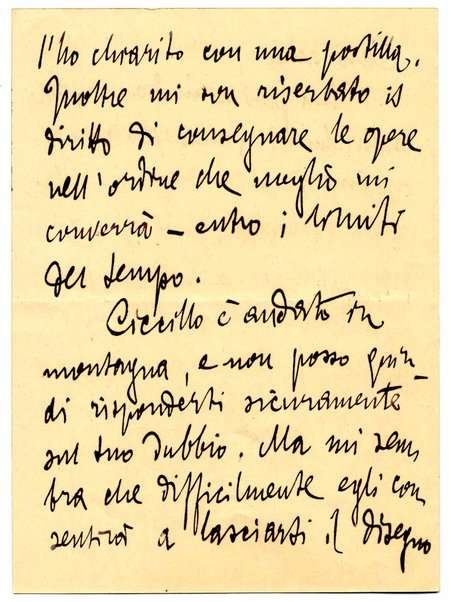 l'ho chiarito con una postilla.
Inoltre mi son riserbato il
diritto di consegnare le opere
nell'ordine che meglio mi
converrà – entro i limiti
del tempo.
Ciccillo è andato in
montagna, e non posso quin-
di risponderti sicuramente
sul tuo dubbio. Ma mi sem,
bra che difficilmente egli con,
sentirà a lasciarti il disegno